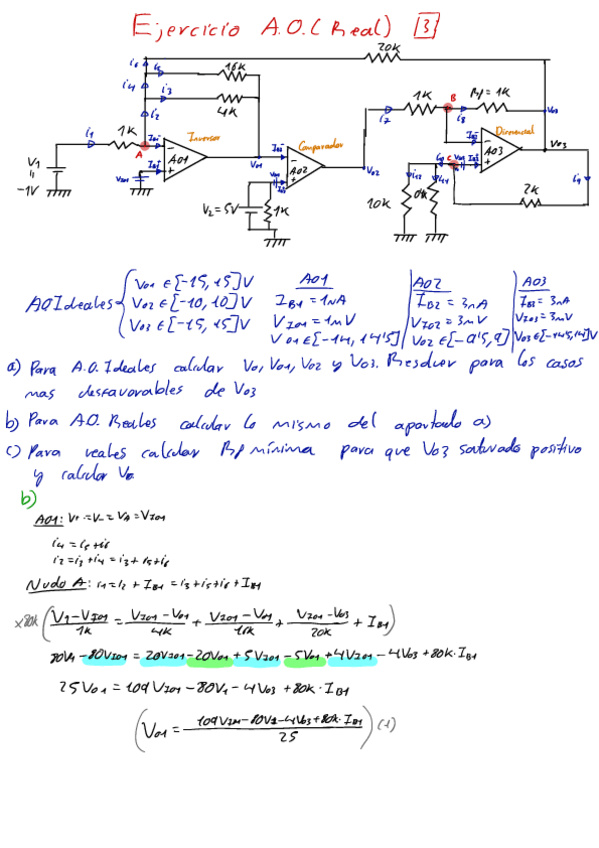 Ejercicio A.O. (Real) [3]
20k
i6
i5
16k
i4
i3
4k
i2
i1
1k
A
Inversor
AO1
Vo1
V1
-1V
Comparador
AO2
Vo2
V2=5V
1k
i7
1k
B
i8
Rf=1k
Vo3
Diferencial
AO3
Vo3
C
10k
2k
i9
AO Ideales { Vo1 ∈ [-15, 15] V
Vo2 ∈ [-10, 10] V
Vo3 ∈ [-15, 15] V
AO1
IB1 = 1nA
VIO1 = 1mV
Vo1 ∈ [-14, 14'5]
AO2
IB2 = 3nA
VIO2 = 3mV
Vo2 ∈ [-9'5, 9]
AO3
IB3 = 3nA
VIO3 = 3mV
Vo3 ∈ [-14'5, 14] V
a) Para A.O. Ideales calcular Vo, Vo1, Vo2 y Vo3. Resolver para los casos
mas desfavorables de Vo3
b) Para A.O. Reales calcular lo mismo del apartado a)
c) Para reales calcular Rf mínima para que Vo3 saturado positivo
y calcular
b)
AO1: V+ = V- = VA = VIO1
i4 = i5 + i6
i2 = i3 + i4 = i3 + i5 + i6
Nudo A: i1 = i2 + IB1 = i3 + i5 + i6 + IB1
x80k ( (V1-VIO1)/1k = (VIO1-Vo1)/4k + (VIO1-Vo1)/16k + (VIO1-Vo3)/20k + IB1 )
80V1 - 80VIO1 = 20VIO1 - 20Vo1 + 5VIO1 - 5Vo1 + 4VIO1 - 4Vo3 + 80k·IB1
25Vo1 = 109VIO1 - 80V1 - 4Vo3 + 80k·IB1
( Vo1 = (109VIO1 - 80V1 - 4Vo3 + 80k·IB1)/25 ) (1)